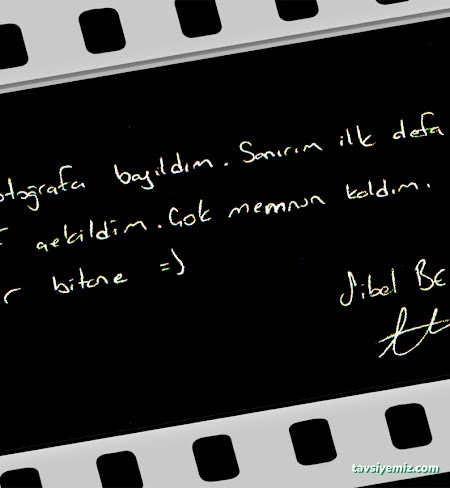 otoğrafa bayıldım. Sanırım ilk defa
çekildim. Çok memnun kaldım.
r bitane =)
Sibel BE
tavsiyemiz.com